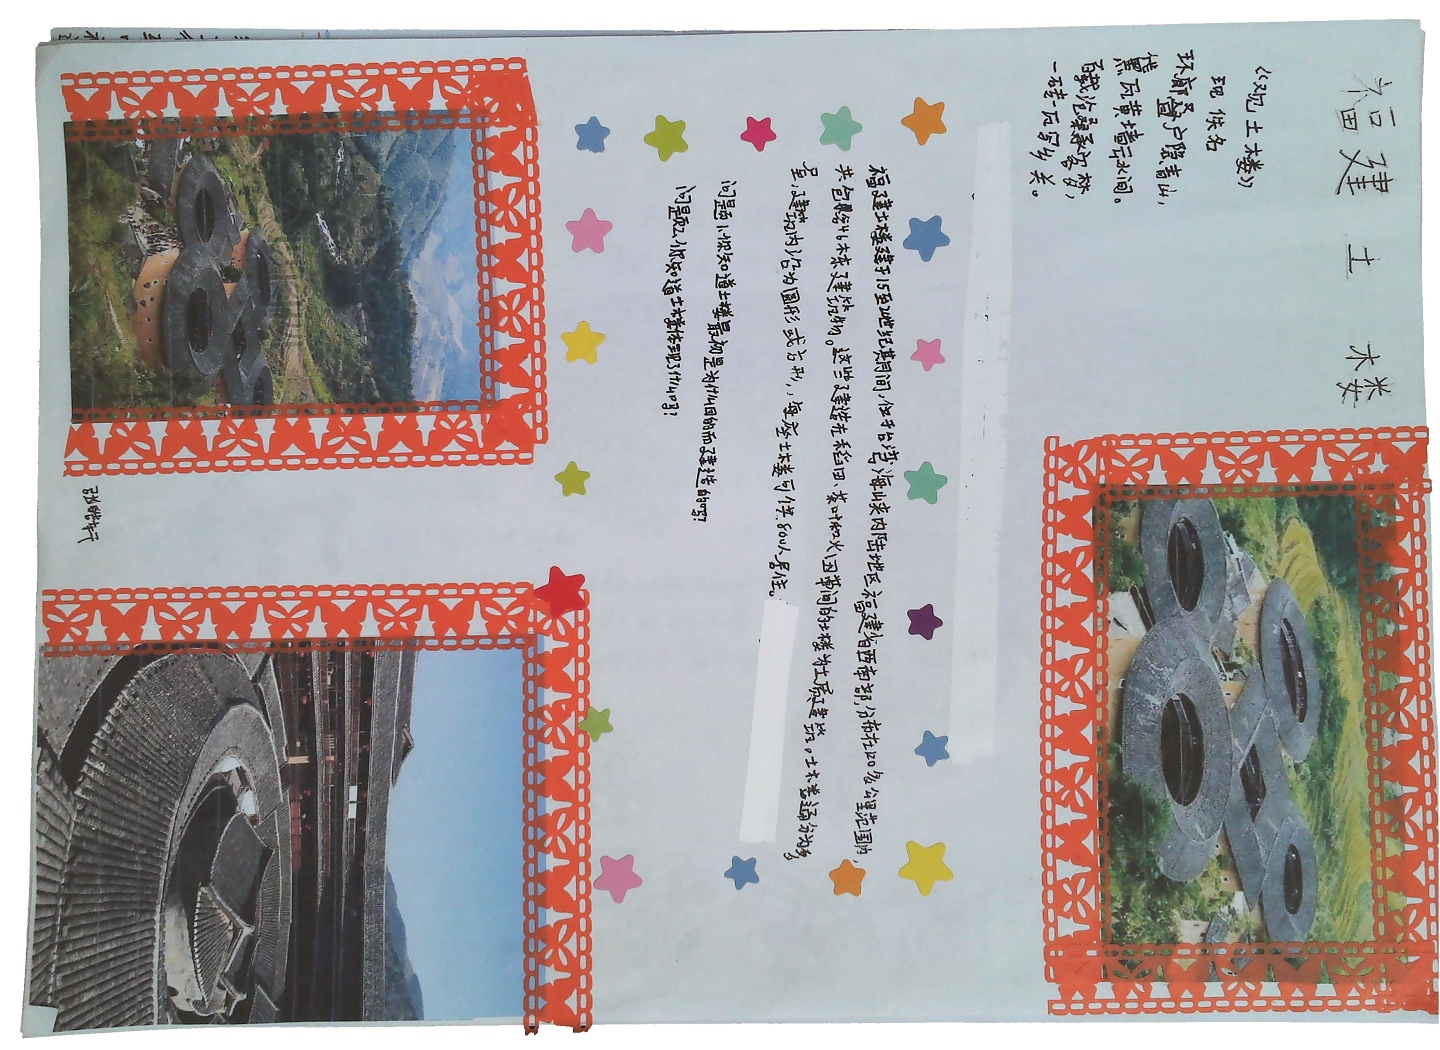 福建土楼
《观土楼》
现 佚名
环廊叠户隐青山，
黛瓦黄墙云水间。
百载沧桑承客梦，
一砖一瓦写乡关。
福建土楼建于15至20世纪其间，位于台湾海峡内陆地区福建省西南部，分布在120多公里范围内，
共包含46栋建筑物。这些建造在稻田、茶叶和火田草间的土楼为土质建筑。土楼通分为多
层，建筑内沿为圆形或方形，，每座土楼可供800人居住。
问题1、你知道土楼最初是为什么目的而建造的吗？
问题2、你知道土楼体现了什么吗？